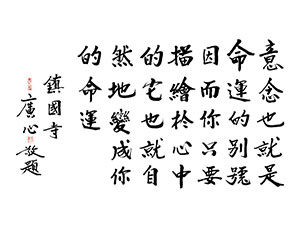 意念也就是
命運的別號
因而你只要
描繪於心中
的它也就自
然地變成你
的命運
鎮國寺
廣心敬題